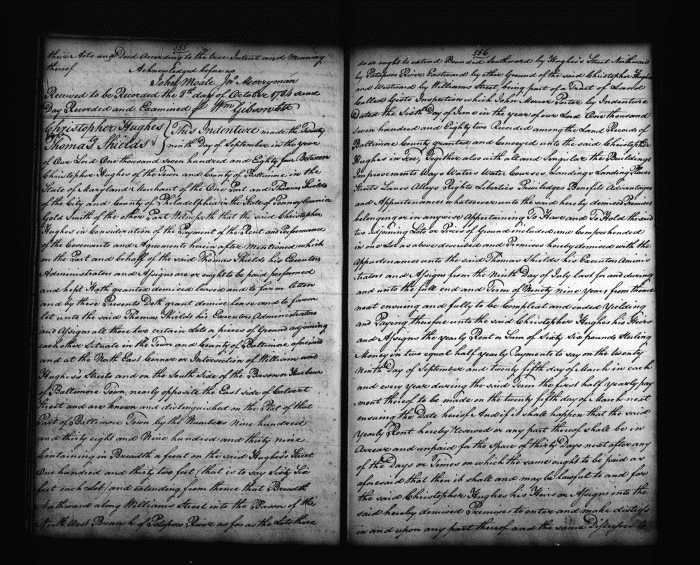 555
their Acts and Deed According to the true Intent and Meaning
thereof Acknowledged before us
John Moale Jno. Merryman
Received to be Recorded the 8th day of October 1784 same
Day Recorded and Examined Wm Gibson Clk
Christopher Hughes
To
Thomas Shields
This Indenture made the Twenty
ninth Day of September in the year
of Our Lord One thousand seven hundred and Eighty four Between
Christopher Hughes of the Town and County of Baltimore in the
State of Maryland Merchant of the One Part and Thomas Shields
of the City and County of Philadelphia in the State of Pennsylvania
Gold Smith of the other Part Witnesseth that the said Christopher
Hughes in Consideration of the Payment of the Rent and Performance
of the Covenants and Agreement herein after Mentioned which
on the Part and behalf of the said Thomas Shields his Executors
Administrators and Assigns are or ought to be paid performed
and kept Hath granted demised leased and to farm letten
and by these Presents Doth grant demise lease and to farm
let unto the said Thomas Shields his Executors Administrators
and Assigns all those two certain Lots or pieces of Ground adjoining
each other Situate in the Town and County of Baltimore aforesaid
and at the North East Corner or Intersection of Williams and
Hughes's Streets and on the South Side of the Bason or Harbour
of Baltimore Town nearly opposite the East side of Calvert
Street and are known and distinguished on the Plat of that
Part of Baltimore Town by the Numbers Nine hundred
and thirty eight and Nine hundred and thirty nine
Containing in Breadth or front on the said Hughes's Street
One hundred and thirty two feet, that is to say Sixty Six
feet each Lot, and extending from thence that Breadth
Northward along Williams Street into the Bason of the
North West Branch of Patapsco River as far as the Lots there
556
do or ought to extend Bounded Southward by Hughes's Street Northward
by Patapsco River Eastward by other Ground of the said Christopher Hughes
and Westward by Williams Street, being part of a Tract of Land
Called Gists Inspection which John Mercer Porter by Indenture
Dated the Sixth Day of June in the year of our Lord One thousand
seven hundred and Eighty two Recorded among the Land Records of
Baltimore County granted and Conveyed unto the said Christopher
Hughes in Fee, Together also with all and Singular the Buildings
Improvements Ways Waters Water Courses Landings Landing Places
Streets Lanes Alleys Rights Liberties Priviledges Benefits Advantages
and Appurtenances whatsoever unto the said hereby demised Premises
belonging or in anywise Appertaining To Have and To Hold the said
two adjoining Lots or Pieces of Ground included and Comprehended
in as above described and Premises hereby demised with the
Appurtenances unto the said Thomas Shields his Executors Adminis
trators and Assigns from the Ninth Day of July last for and during
and unto the full end and Term of Ninety Nine years from thence
next ensuing and fully to be Compleat and ended Yielding
and Paying therefor unto the said Christopher Hughes his Heirs
and Assigns the yearly Rent or Sum of Sixty Six pounds Sterling
Money in two equal half yearly Payments to say on the twenty
Ninth Day of September and twenty fifth day of March in each
and every Year during the said Term the first half Yearly pay
ment thereof to be made on the twenty fifth day of March next
ensuing the Date hereof And if it shall happen that the said
Yearly Rent hereby reserved or any part thereof shall be in
Arrear and unpaid for the Space of thirty Days next after any
of the Days or Times on which the same ought to be paid as
aforesaid that then it shall and may be lawful to and for
the said Christopher Hughes his Heirs or Assigns into the
said hereby demised Premises to enter and make distress
in and upon any part thereof and the same Distresses to